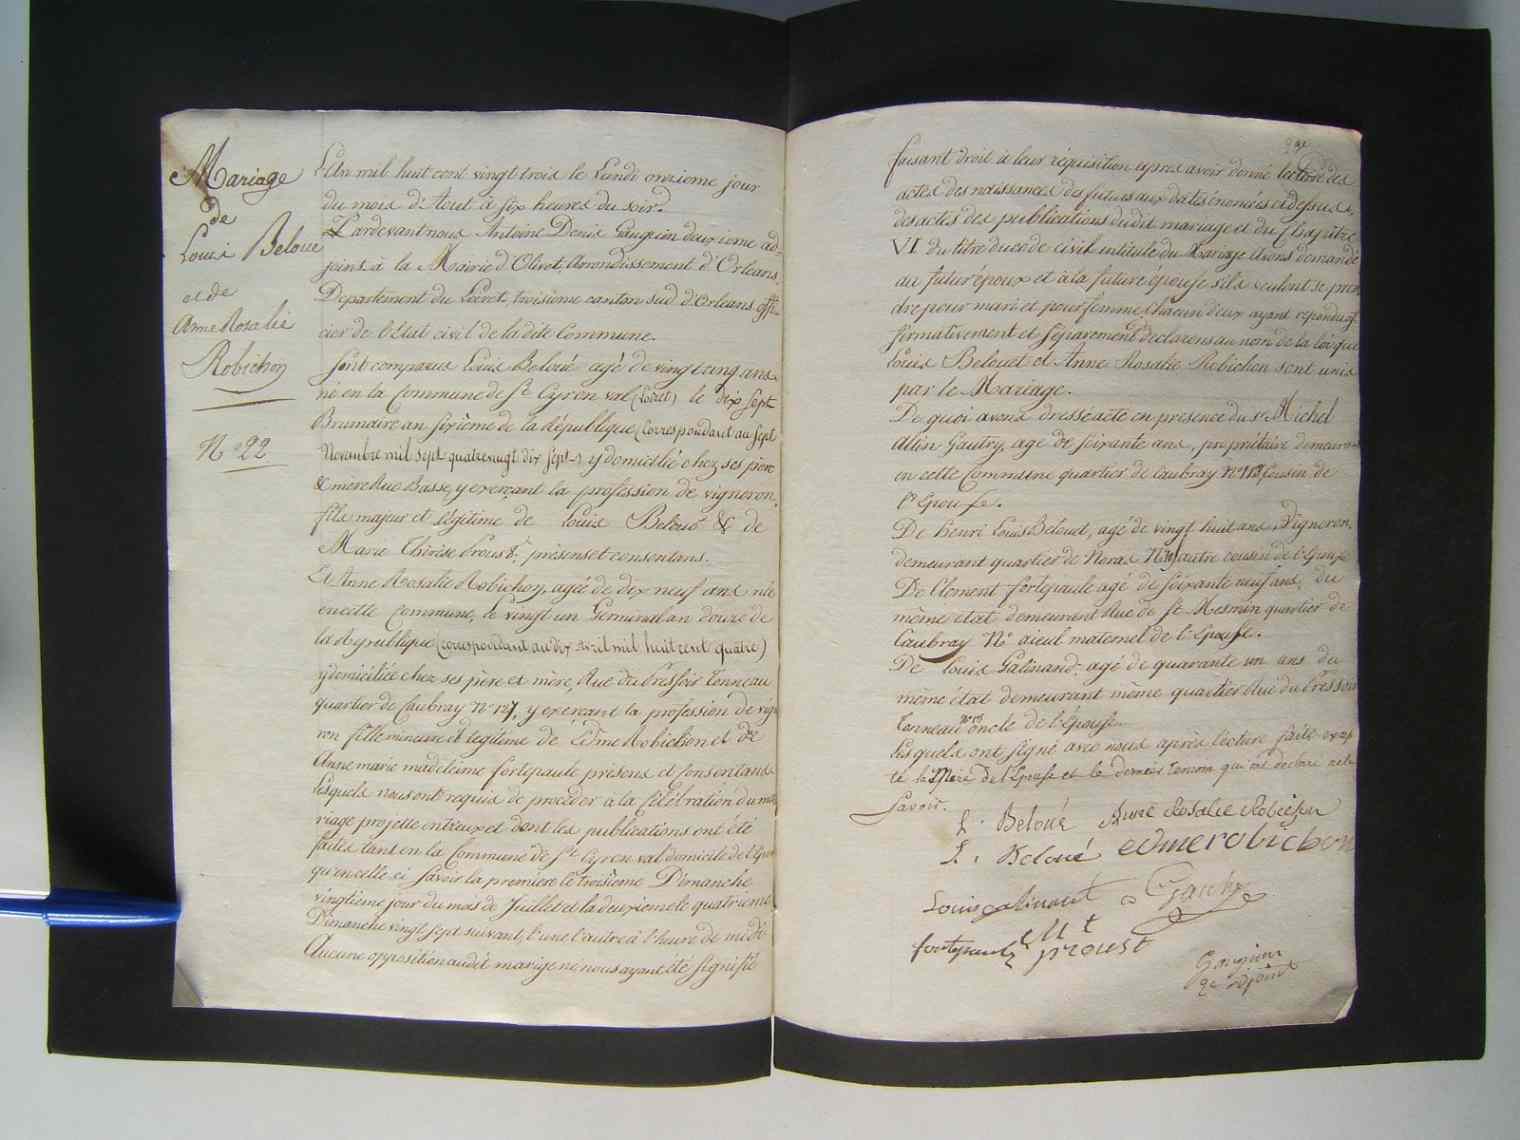 Mariage
de
Louis Beloue
et de
Anne Rosalie
Robichon
N° 22
L'An mil huit cent vingt trois le Lundi onzieme jour
du mois d'Aout à six heures du soir.
Pardevant nous Antoine Denis Gauguin deuxieme ad-
joint à la Mairie d'Olivet Arrondissement d'Orleans,
Departement du Loiret, troisieme canton sud d'Orleans offi-
cier de l'Etat civil de la dite Commune.
Sont comparus Louis Beloué agé de vingt cinq ans
né en la Commune de St. Cyr en val (Loiret) le dix sept
Brumaire an sixième de la république (Correspondant au sept
Novembre mil sept quatrevingt dix sept) y domicilié chez ses père
& mère Rue Basse, y exerçant la profession de vigneron,
fils majeur et légitime de Louis Beloué & de
Marie Thérèse Proust, présens et consentans.
Et Anne Rosalie Robichon, agée de dix neuf ans née
en cette Commune, le vingt un Germinal an douze de
la République (correspondant au dix avril mil huit cent quatre)
y domiciliée chez ses père et mère, Rue du Pressoir Tonneau
quartier de Caubray N° 127, y exerçant la profession de vigne
ron fille mineure et legitime de Edme Robichon et de
Anne marie madeleine fortepaule présens et Consentans
Lesquels nous ont requis de procéder à la Célébration du ma
riage projetté entr'eux et dont les publications ont été
faites tant en la Commune de St. Cyr en val domicile de l'Epoux
qu'en celle ci Savoir la premiere le troisieme Dimanche
vingtieme jour du mois de Juillet et la deuxieme le quatrieme
Dimanche vingt sept suivant, l'une l'autre à l'heure de midi
Aucune opposition audit mariage ne nous ayant été signifié
faisant droit à leur réquisition apres avoir donné lecture des
actes des naissances des futurs aux dates énoncées cidessus,
des actes des publications du dit mariage et du Chapitre
VI du titre du code civil intitulé du Mariage Avons demandé
au futur époux et à la future épouse s'ils veulent se pren
dre pour mari et pour femme, Chacun d'eux ayant repondu af
firmativement et séparement declarons au nom de la loi que
Louis Belouet et Anne Rosalie Robichon sont unis
par le Mariage.
De quoi avons dressé acte en presence du Sr. Michel
Alin Gautry, agé de soixante ans, propriétaire demeurant
en cette Commune quartier de Caubray N° 113, Cousin de
l'Epouse.
De henri Louis Belouet, agé de vingt huit ans, Vigneron,
demeurant quartier de Noras autre cousin de l'Epouse
De Clement fortepaule agé de soixante neuf ans, du
même état demeurant Rue de St. Mesmin quartier de
Caubray N° aieul maternel de l'Epouse.
De Louis Galinand, agé de quarante un ans du
même état demeurant même quartier Rue du Pressoir
Tonneau oncle de l'épouse.
Lesquels ont signé avec nous après lecture faite excep
té la Mère de l'Epouse et le dernier temoin qui ont déclaré ne le
Savoir.
L. Beloué Anne Rosalie Robichon
L. Beloué edme robichon
Louis galinand Gautry
fortepaule M t proust
Gauguin
2e adjoint